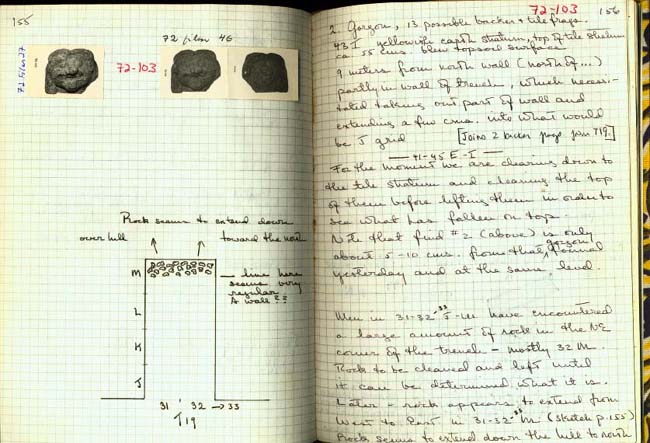 155
72 film 46
72 Film 27
72-103
Rock seems to extend down
over hill toward the north
M
L
K
J
line here
seems very
regular
A wall??
31 32 → 33
T19
72-103
156
2. Gorgon, 13 possible backer & tile frags.
43 I yellowish earth stratum, top of tile stratum
ca 55 cms. below topsoil surface
9 meters from north wall (north of ...)
partly in wall of trench, which necessi-
tated taking out part of wall and
extending a few cms. into what would
be J grid
[Joins 2 backer frags from T19.]
41-45 E-I
For the moment we are clearing down to
the tile stratum and cleaning the top
of them before lifting them in order to
see what has fallen on top.
Note that find #2 (above) is only
about 5-10 cms. from that gorgon found
yesterday and at the same level.
Men in 31-32-33 J-M have encountered
a large amount of rock in the NE
corner of the trench - mostly 32 M.
Rock to be cleaned and left until
it can be determined what it is.
Later - rock appears to extend from
West to East in 31-32-33 M (sketch p.155)
Rock seems to extend down the hill to north